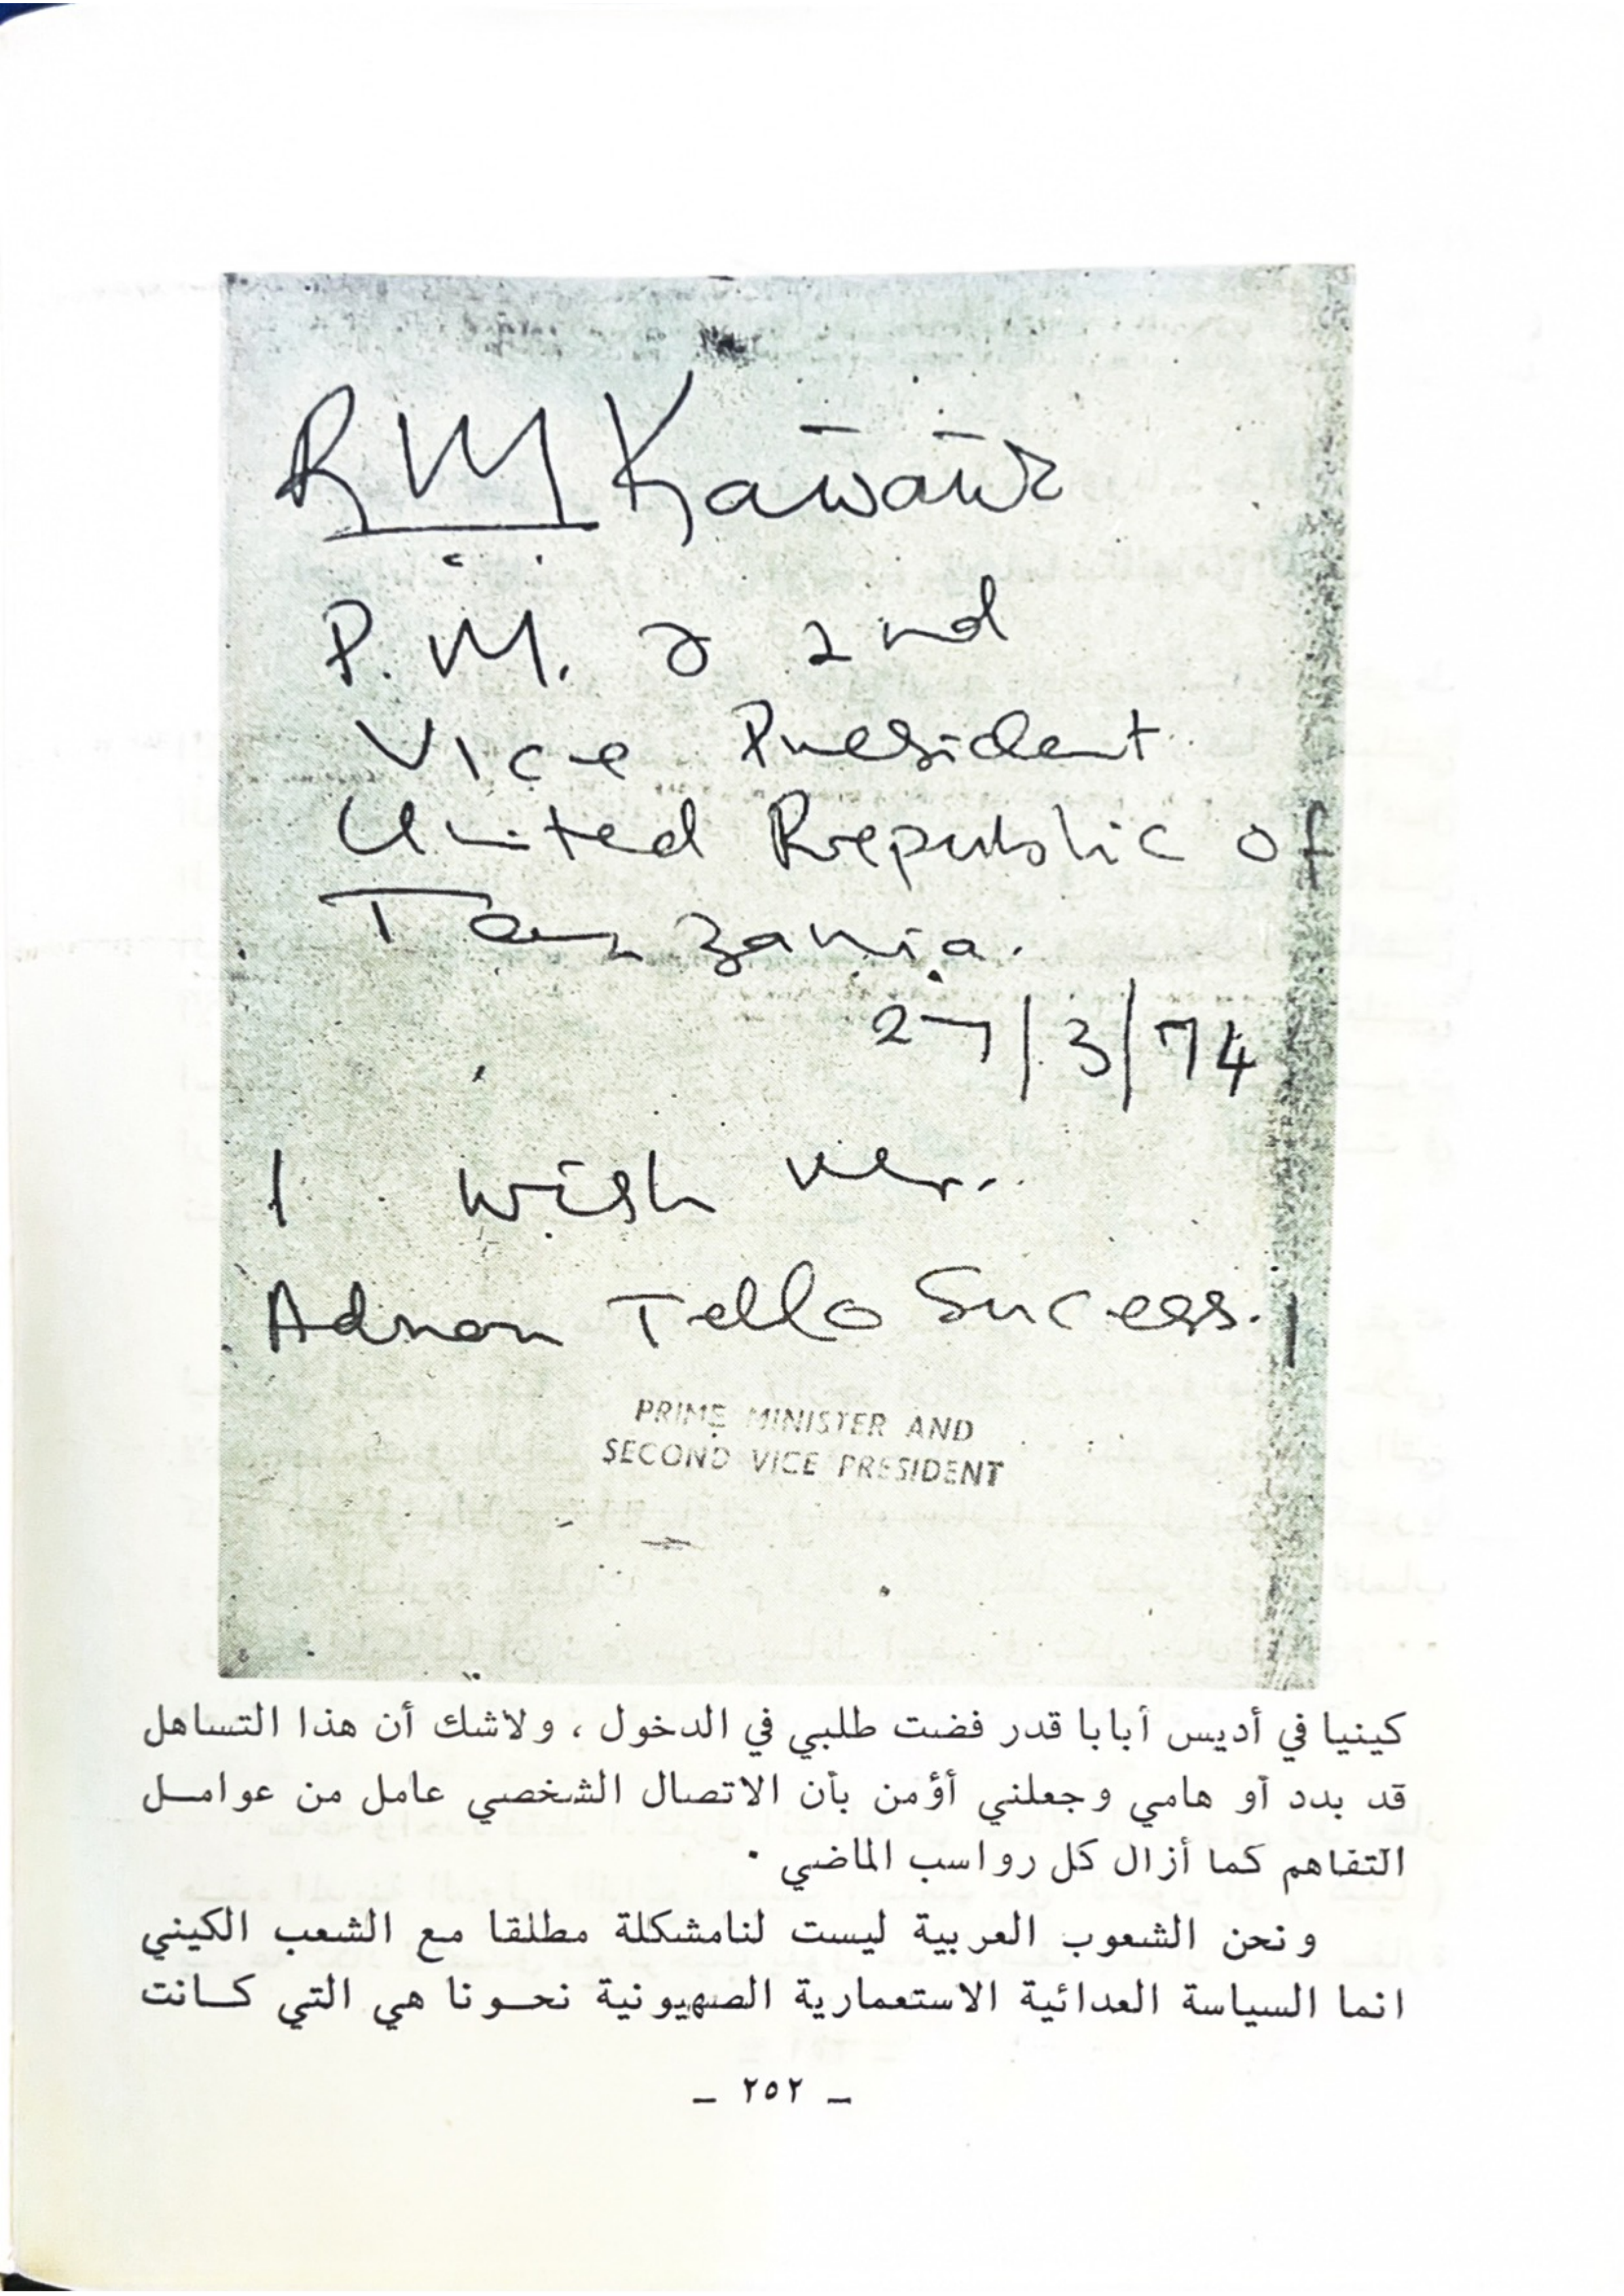 RM Kawawa
P.M. & 2nd
Vice President
United Rrepublic of
Tanzania.
27/3/74
I wish
Adnan Tello Sucess.
PRIME MINISTER AND
SECOND VICE PRESIDENT
كينيا في أديس أبابا قدر فضت طلبي في الدخول ، ولاشك أن هذا التساهل
قد بدد أو هامي وجعلني أؤمن بأن الاتصال الشخصي عامل من عوامـل
التفاهم كما أزال كل رواسب الماضي ٠
ونحن الشعوب العربية ليست لنامشكلة مطلقا مع الشعب الكيني
انما السياسة العدائية الاستعمارية الصهيونية نحـونا هي التي كـانت
ـ ٢٥٢ ـ